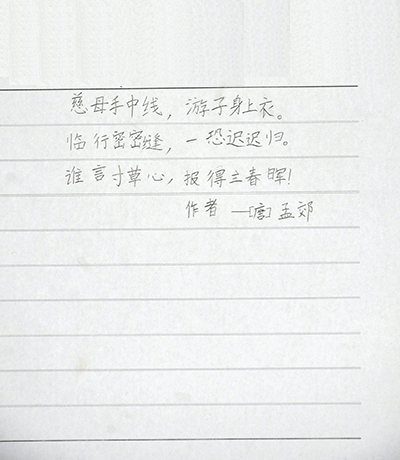 慈母手中线，游子身上衣。
临行密密缝，一恐迟迟归。
谁言寸草心，报得三春晖！
作者 —[唐]孟郊